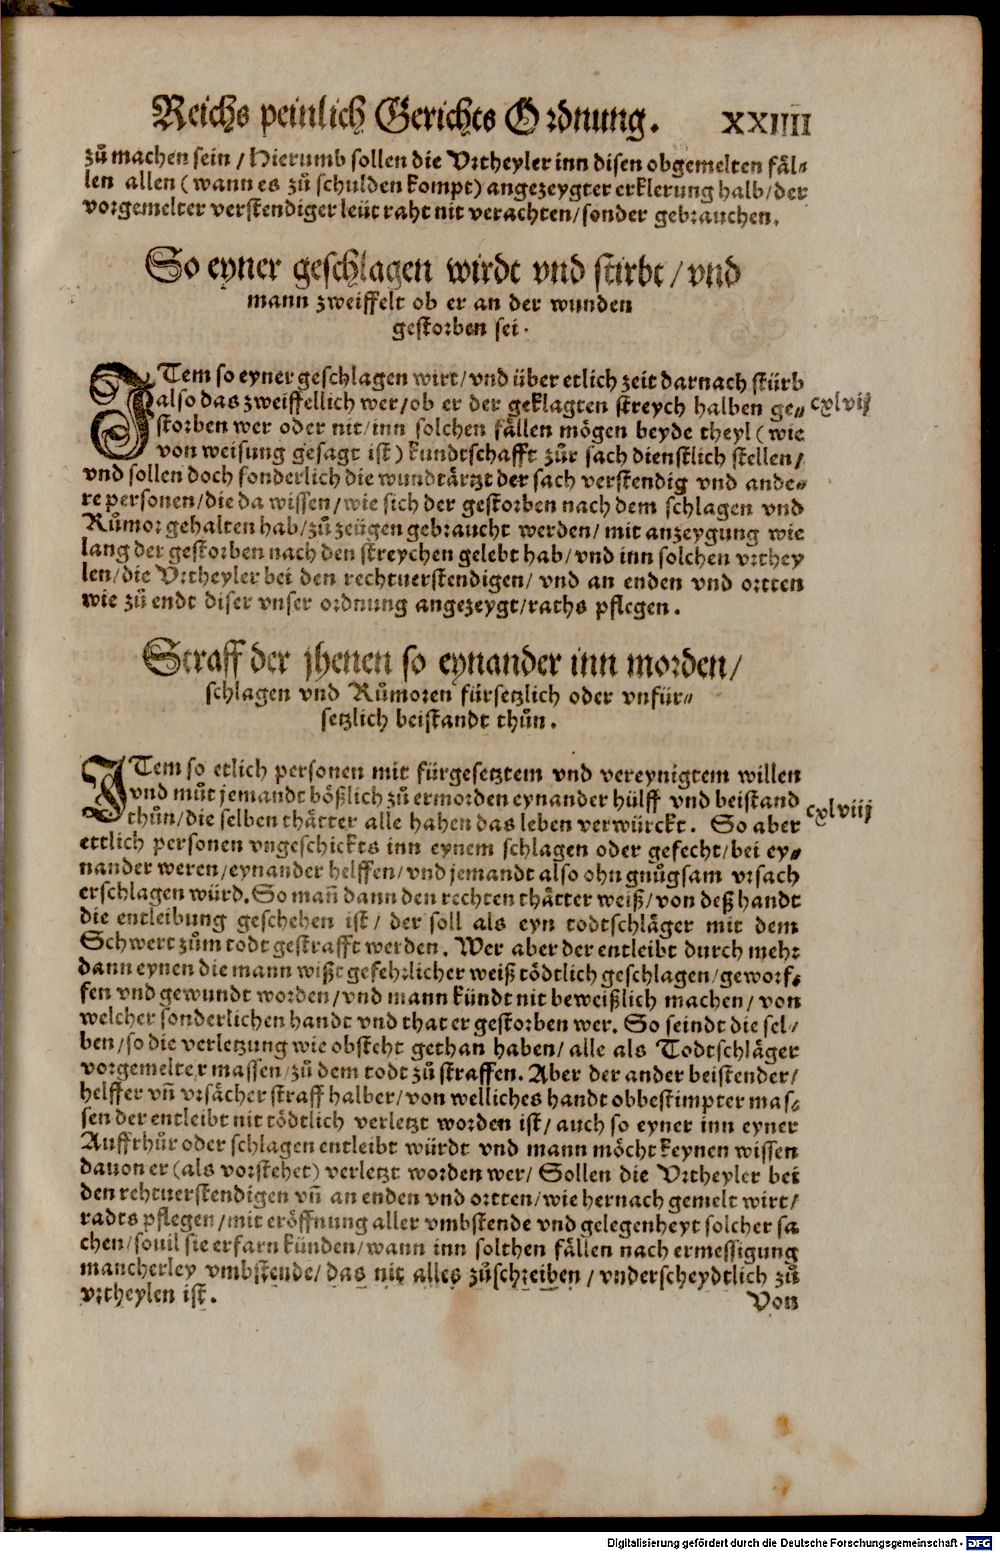 Reichs peinlich Gerichts Ordnung. XXIIII
zů machen sein / Hierumb sollen die Vrtheyler inn disen obgemelten fäl⸗
len allen (wann es zů schulden kompt) angezeygter erklerung halb / der
vorgemelter verstendiger leüt raht nit verachten / sonder gebrauchen.
So eyner geschlagen wirdt vnd stirbt / vnd
mann zweiffelt ob er an der wunden
gestorben sei.
ITem so eyner geschlagen wirt / vnd über etlich zeit darnach stürb
also das zweiffellich wer / ob er der geklagten streych halben ge⸗ cxlvij
storben wer oder nit / inn solchen fällen mögen beyde theyl (wie
von weisung gesagt ist) kundtschafft zůr sach dienstlich stellen /
vnd sollen doch sonderlich die wundtärtzt der sach verstendig vnd ande⸗
re personen / die da wissen / wie sich der gestorben nach dem schlagen vnd
Růmor gehalten hab / zů zeügen gebraucht werden / mit anzeygung wie
lang der gestorben nach den streychen gelebt hab / vnd inn solchen vrthey
len / die Vrtheyler bei den rechtuerstendigen / vnd an enden vnd ortten
wie zů endt diser vnser ordnung angezeygt / raths pflegen.
Straff der jhenen so eynander inn morden /
schlagen vnd Růmoren fürsetzlich oder vnfür⸗
setzlich beistandt thůn.
ITem so etlich personen mit fürgesetztem vnd vereynigtem willen
vnd můt jemandt bößlich zů ermorden eynander hülff vnd beistand
thůn / die selben thätter alle haben das leben verwürckt. So aber cxlviij
ettlich personen vngeschickts inn eynem schlagen oder gefecht / bei ey⸗
nander weren / eynander helffen / vnd jemandt also ohn gnůgsam vrsach
erschlagen würd. So mañ dann den rechten thätter weiß / von deß handt
die entleibung geschehen ist / der soll als eyn todtschläger mit dem
Schwert zům todt gestrafft werden. Wer aber der entleibt durch mehr
dann eynen die mann wißt gefehrlicher weiß tödtlich geschlagen / geworf⸗
fen vnd gewundt worden / vnd mann kündt nit beweißlich machen / von
welcher sonderlichen handt vnd that er gestorben wer. So seindt die sel /
ben / so die verletzung wie obsteht gethan haben / alle als Todtschläger
vorgemelter massen / zů dem todt zů straffen. Aber der ander beistender /
helffer vñ vrsächer straff halber / von welliches handt obbestimpter mas⸗
sen der entleibt nit tödtlich verletzt worden ist / auch so eyner inn eyner
Auffrhůr oder schlagen entleibt würdt vnd mann möcht keynen wissen
dauon er (als vorstehet) verletzt worden wer / Sollen die Vrtheyler bei
den rehtuerstendigen vñ an enden vnd ortten / wie hernach gemelt wirt /
radts pflegen / mit eröffnung aller vmbstende vnd gelegenheyt solcher sa
chen / souil sie erfarn künden / wann inn solthen fällen nach ermessigung
mancherley vmbstende / das nit alles zůschreiben / vnderscheydtlich zů
vrtheylen ist.
Von
Digitalisierung gefördert durch die Deutsche Forschungsgemeinschaft - DFG